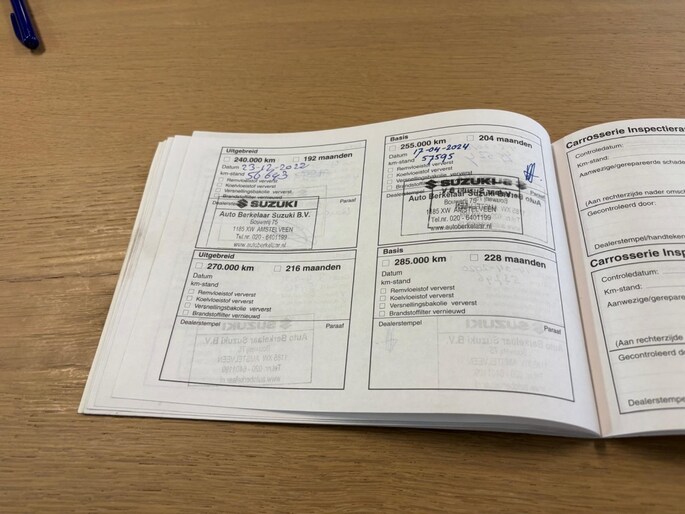 Uitgebreid
240.000 km 192 maanden
Datum 23-12-2022
km-stand 56643
Remvloeistof ververst
Koelvloeistof ververst
Versnellingsbakolie ververst
Brandstoffilter vernieuwd
Dealerstempel Paraaf
SUZUKI
Auto Berkelaar Suzuki B.V.
Bouwerij 75
1185 XW AMSTELVEEN
Tel.nr. 020 - 6401199
www.autoberkelaar.nl
Basis
255.000 km 204 maanden
Datum 17-04-2024
km-stand 57595
Remvloeistof ververst
Koelvloeistof ververst
Versnellingsbakolie ververst
Brandstoffilter
Dealerstempel
SUZUKI
Auto Berkelaar Suzuki B.V.
Bouwerij 75
1185 XW AMSTELVEEN
Tel.nr. 020 - 6401199
www.autoberkelaar.nl
Uitgebreid
270.000 km 216 maanden
Datum
km-stand
Remvloeistof ververst
Koelvloeistof ververst
Versnellingsbakolie ververst
Brandstoffilter vernieuwd
Dealerstempel Paraaf
Basis
285.000 km 228 maanden
Datum
km-stand
Remvloeistof ververst
Koelvloeistof ververst
Versnellingsbakolie ververst
Brandstoffilter vernieuwd
Dealerstempel Paraaf
Carrosserie Inspectiera
Controledatum:
Km-stand:
Aanwezige/gerepareerde schade
(Aan rechterzijde nader omsch
Gecontroleerd door:
Dealerstempel/handteken
Carrosserie Insp
Controledatum:
Km-stand:
Aanwezige/gerepare
(Aan rechterzijde
Gecontroleerd do
Dealerstempe